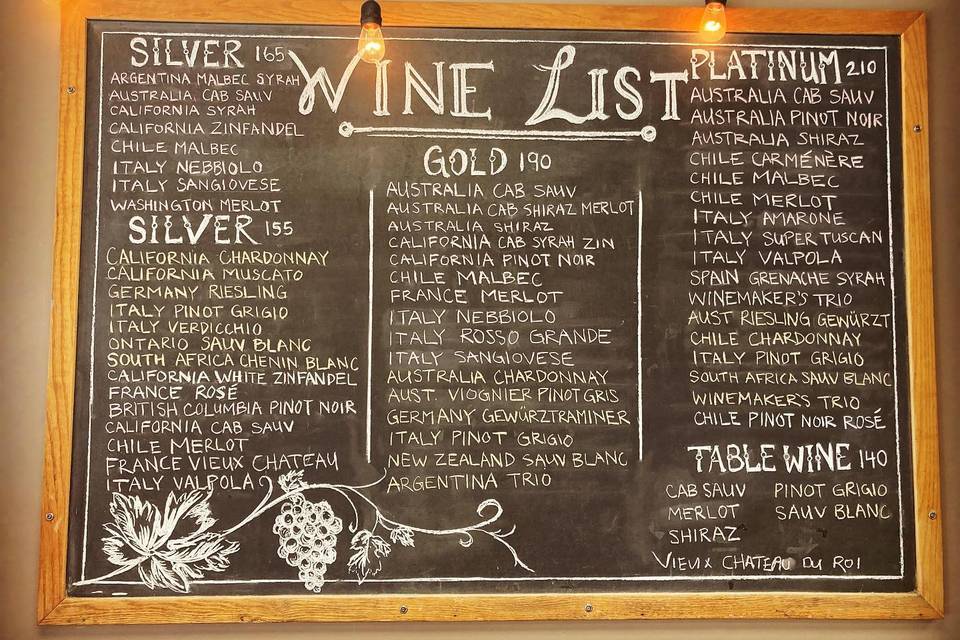 WINE LIST
SILVER 165
ARGENTINA MALBEC SYRAH
AUSTRALIA CAB SAUV
CALIFORNIA SYRAH
CALIFORNIA ZINFANDEL
CHILE MALBEC
ITALY NEBBIOLO
ITALY SANGIOVESE
WASHINGTON MERLOT
SILVER 155
CALIFORNIA CHARDONNAY
CALIFORNIA MUSCATO
GERMANY RIESLING
ITALY PINOT GRIGIO
ITALY VERDICCHIO
ONTARIO SAUV BLANC
SOUTH AFRICA CHENIN BLANC
CALIFORNIA WHITE ZINFANDEL
FRANCE ROSÉ
BRITISH COLUMBIA PINOT NOIR
CALIFORNIA CAB SAUV
CHILE MERLOT
FRANCE VIEUX CHATEAU
ITALY VALPOLA
GOLD 190
AUSTRALIA CAB SAUV
AUSTRALIA CAB SHIRAZ MERLOT
AUSTRALIA SHIRAZ
CALIFORNIA CAB SYRAH ZIN
CALIFORNIA PINOT NOIR
CHILE MALBEC
FRANCE MERLOT
ITALY NEBBIOLO
ITALY ROSSO GRANDE
ITALY SANGIOVESE
AUSTRALIA CHARDONNAY
AUST. VIOGNIER PINOT GRIS
GERMANY GEWÜRZTRAMINER
ITALY PINOT GRIGIO
NEW ZEALAND SAUV BLANC
ARGENTINA TRIO
PLATINUM 210
AUSTRALIA CAB SAUV
AUSTRALIA PINOT NOIR
AUSTRALIA SHIRAZ
CHILE CARMÉNÈRE
CHILE MALBEC
CHILE MERLOT
ITALY AMARONE
ITALY SUPER TUSCAN
ITALY VALPOLA
SPAIN GRENACHE SYRAH
WINEMAKER'S TRIO
AUST RIESLING GEWÜRZT
CHILE CHARDONNAY
ITALY PINOT GRIGIO
SOUTH AFRICA SAUV BLANC
WINEMAKER'S TRIO
CHILE PINOT NOIR ROSÉ
TABLE WINE 140
CAB SAUV PINOT GRIGIO
MERLOT SAUV BLANC
SHIRAZ
VIEUX CHATEAU DU ROI